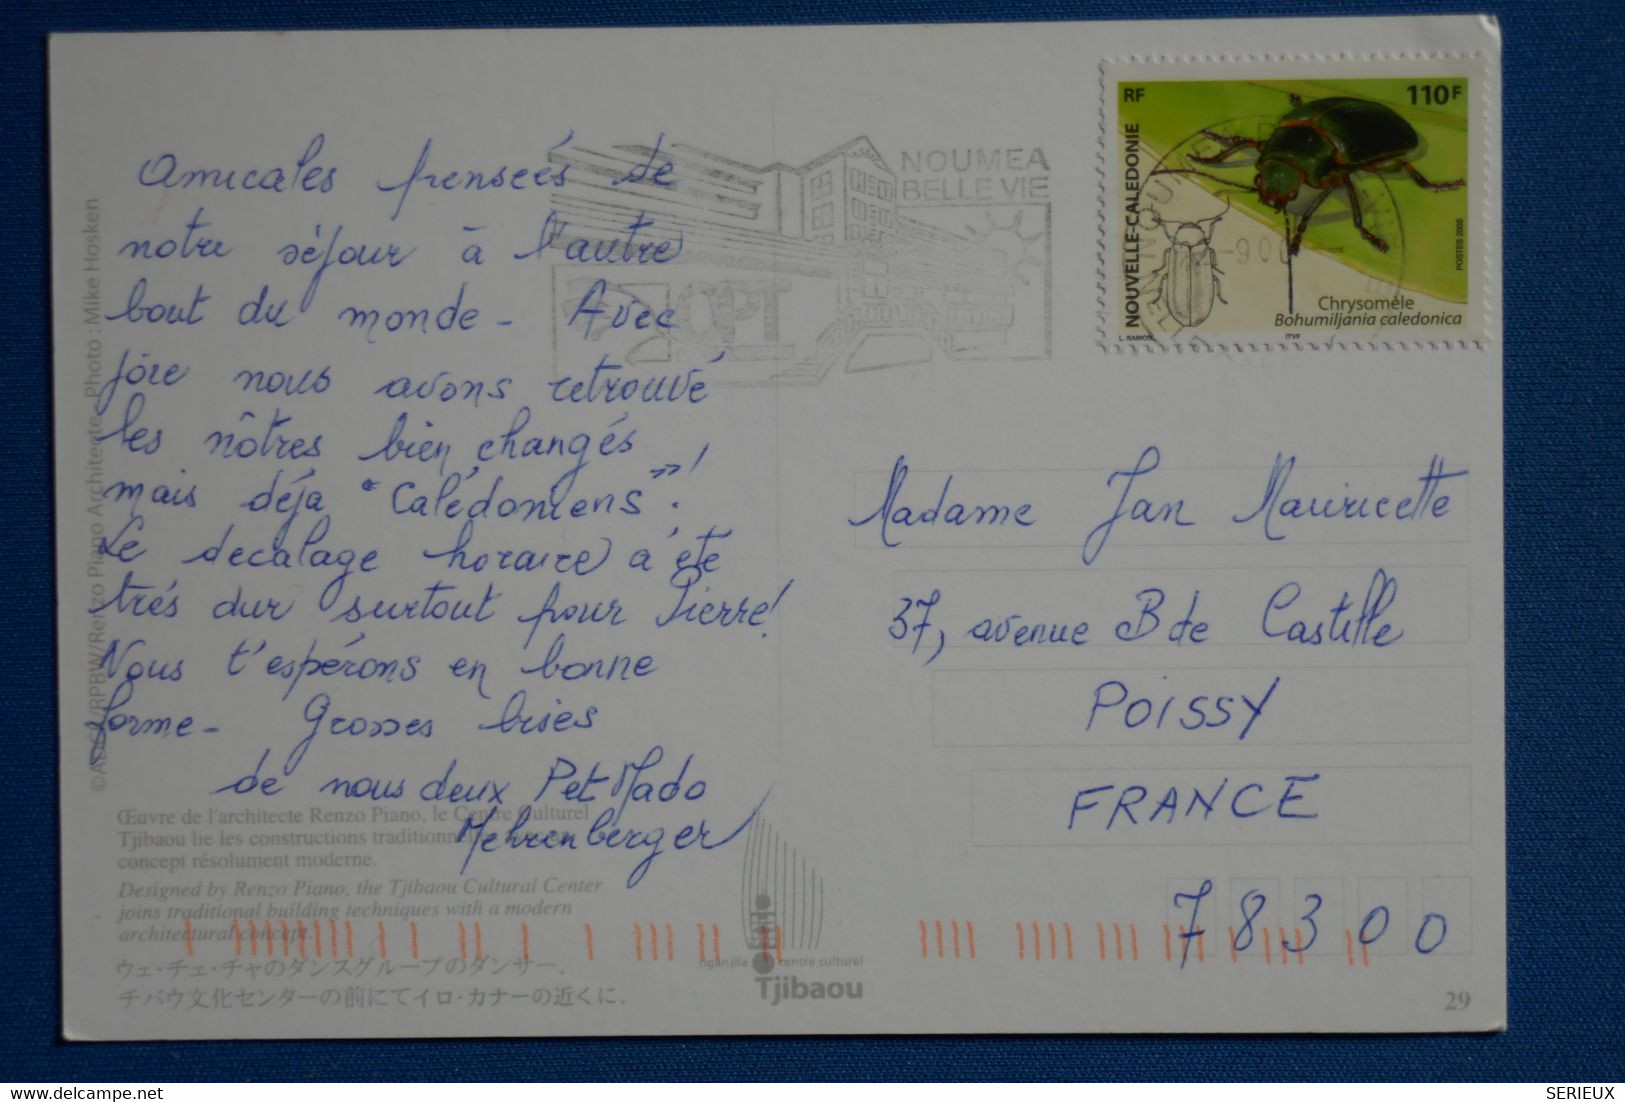 Amicales penseés de
notre séjour à l'autre
bout du monde - Avec
joie nous avons retrouvé
les nôtres bien changés
mais déja "Calédoniens"!
Le decalage horaire a été
trés dur surtout pour Pierre!
Nous t'espérons en bonne
forme - Grosses bises
de nous deux P et Mado
Mehrenberger
NOUMEA
BELLE VIE
OPT
RF
110F
NOUVELLE-CALEDONIE
Chrysomèle
Bohumiljania caledonica
L. RAMON
ITVF
POSTES 2005
Madame Jan Mauricette
37, avenue B de Castille
POISSY
FRANCE
78300
Photo : Mike Hosken
/RPBW/Renzo Piano Architecte
Œuvre de l'architecte Renzo Piano, le Centre Culturel
Tjibaou lie les constructions
concept résolument moderne.
Designed by Renzo Piano, the Tjibaou Cultural Center
joins traditional building techniques with a modern
architectural concept.
ウェ・チェ・チャのダンスグループのダンサー、
チバウ文化センターの前にてイロ・カナーの近くに、
ngan jila centre culturel
Tjibaou
29
SERIEUX